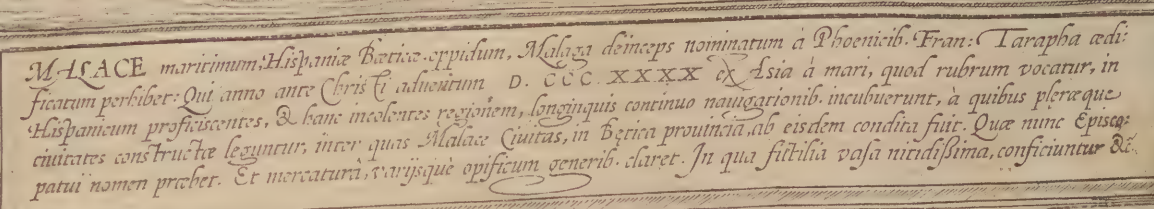 MALACE maritimum, Hispaniæ Bæticæ oppidum, Malaga deinceps nominatum à Phoenicib. Fran: Tarapha ædi:
ficatum perhibet: Qui anno ante Christi adventum D. CCC. XXXX ex Asia à mari, quod rubrum vocatur, in
Hispanicum proficiscentes, & hanc incolentes regionem, longinquis continuo navigationib. incubuerunt, à quibus pleræque
civitates constructæ leguntur, inter quas Malace Civitas, in Bętica provincia, ab eisdem condita fuit. Quæ nunc Episco:
patui nomen præbet. Et mercatura, varijsque opificum generib. claret. In qua fictilia vasa nitidissima, conficiuntur &c.